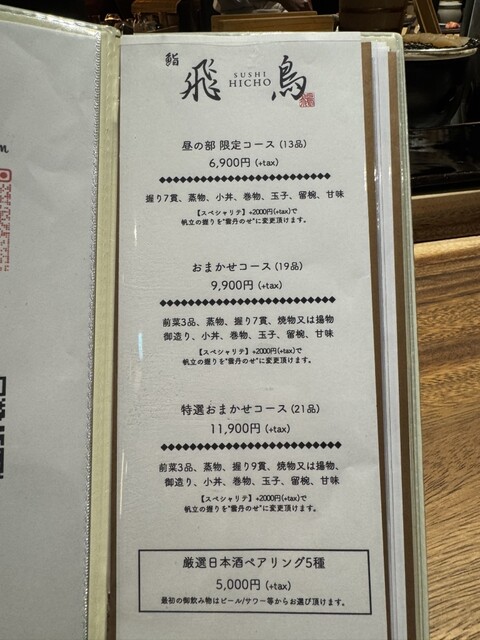 鮨
飛鳥
SUSHI
HICHO
昼の部 限定コース (13品)
6,900円 (+tax)
握り7貫、蒸物、小丼、巻物、玉子、留椀、甘味
【スペシャリテ】+2000円(+tax)で
帆立の握りを"雲丹のせ"に変更頂けます。
おまかせコース (19品)
9,900円 (+tax)
前菜3品、蒸物、握り7貫、焼物又は揚物
御造り、小丼、巻物、玉子、留椀、甘味
【スペシャリテ】+2000円(+tax)で
帆立の握りを"雲丹のせ"に変更頂けます。
特選おまかせコース (21品)
11,900円 (+tax)
前菜3品、蒸物、握り9貫、焼物又は揚物、
御造り、小丼、巻物、玉子、留椀、甘味
【スペシャリテ】+2000円(+tax)で
帆立の握りを"雲丹のせ"に変更頂けます。
厳選日本酒ペアリング5種
5,000円 (+tax)
最初の御飲み物はビール/サワー等からお選び頂けます。